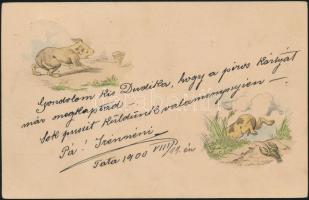 Gondolom kis Dudika, hogy a piros kártyát
már megkaptad
Sok puszit küldünk valamennyien –
Pá! Irénnéni
Tata 1900 VIII/11. én